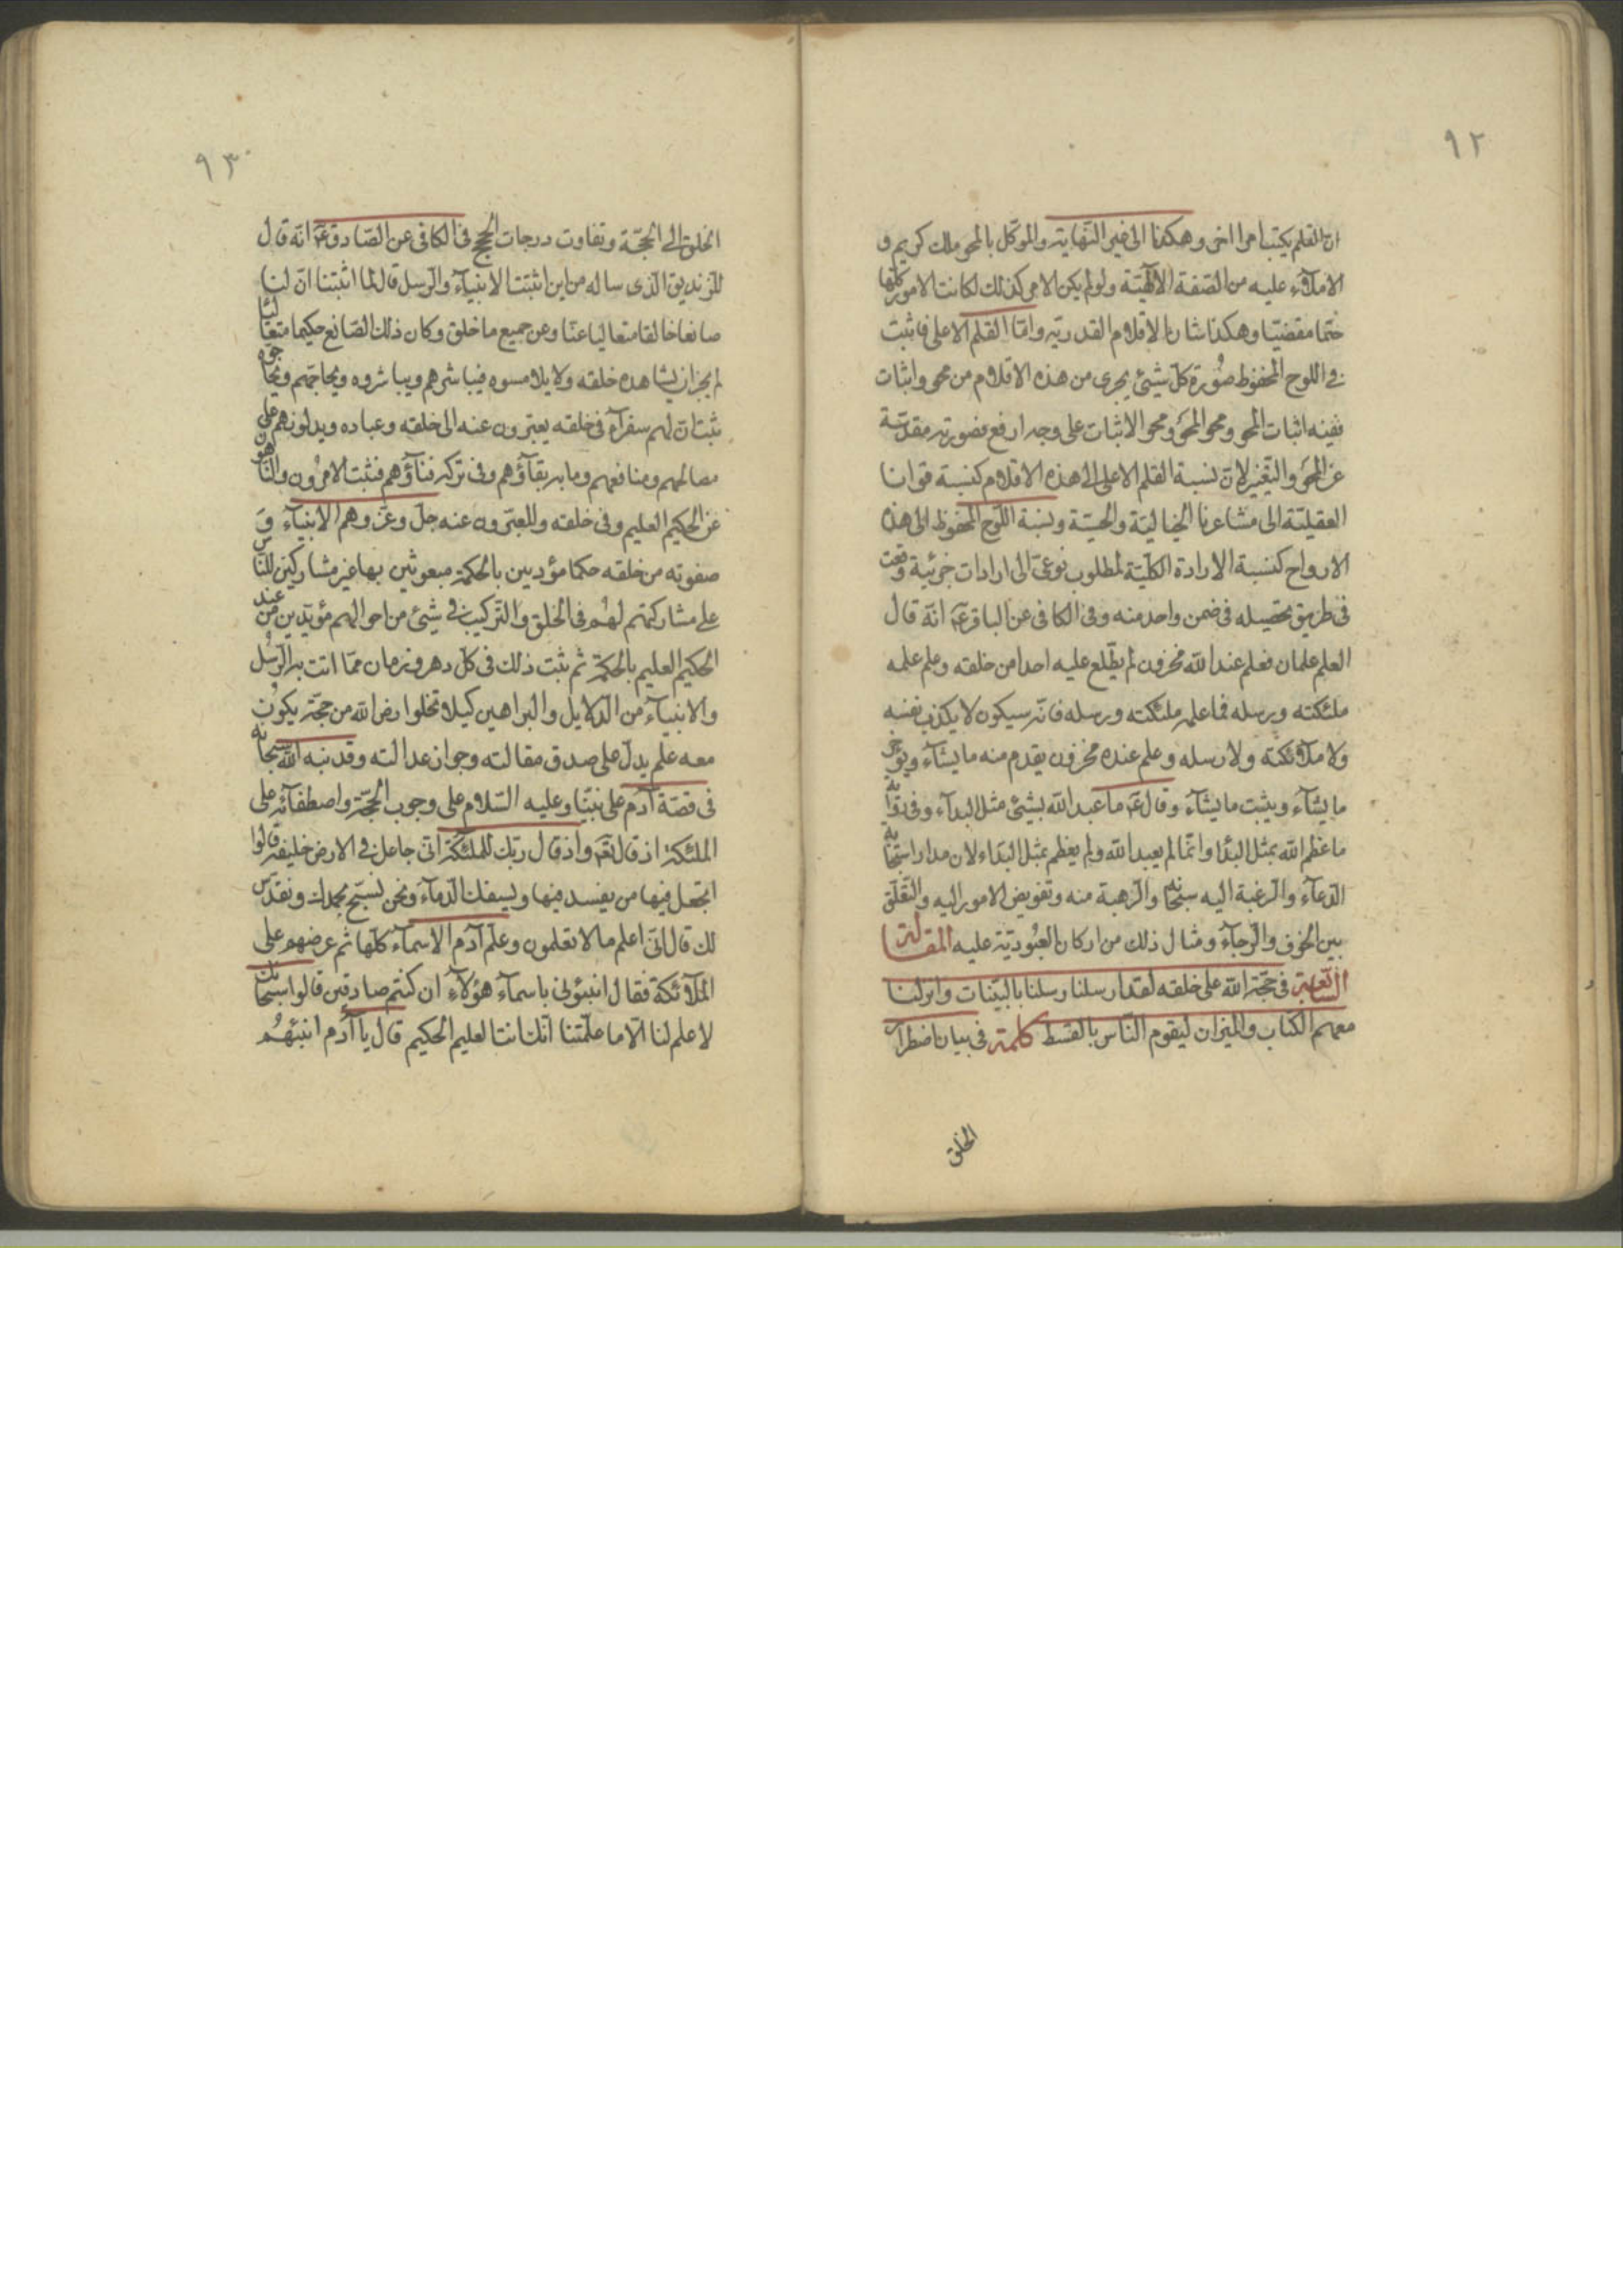 ٩٢
ان القلم يكتب امرا اخر وهكذا الى غير النهاية والموكل بالمحو ملك كريم و
الاملاء عليه من الصفة الالهية ولو لم يكن الامر كذلك لكانت الامور كلها
حتما مقضيا وهكذا شان الاقلام القدرية واما القلم الاعلى فاثبت
في اللوح المحفوظ صورة كل شيئ يجرى من هذه الاقلام من محو واثبات
ففيه اثبات المحو ومحو المحو ومحو الاثبات على وجه ارفع فصورته مقدسة
عن المحو والتغير لان نسبة القلم الاعلى الى هذه الاقلام كنسبة قوانا
العقلية الى مشاعرنا الخيالية والحسية ونسبة اللوح المحفوظ الى هذه
الارواح كنسبة الارادة الكلية لمطلوب نوعى الى ارادات جزئية وقعت
فى طريق تحصيله فى ضمن واحد منه وفى الكافى عن الباقر عم انه قال
العلم علمان فعلم عند الله مخزون لم يطلع عليه احدا من خلقه وعلم علمه
ملئكته ورسله فما علمه ملئكته ورسله فانه سيكون لا يكذب نفسه
ولا ملائكته ولا رسله وعلم عنده مخزون يقدم منه ما يشاء ويؤخر
ما يشاء ويثبت ما يشاء وقال عم ما عبد الله بشيئ مثل البداء وفى رواية
ما عظم الله بمثل البدا وانما لم يعبد الله ولم يعظم بمثل البداء لان مدار استجابة
الدعاء والرغبة اليه سبحانه والرهبة منه وتفويض الامور اليه والتعلق
بين الخوف والرجاء ومثال ذلك من اركان العبودية عليه المقالة
السابعة فى حجة الله على خلقه لقد ارسلنا رسلنا بالبينات وانزلنا
معهم الكتاب والميزان ليقوم الناس بالقسط كلمة فى بيان اضطرار
الخلق
٩٣
الخلق الى الحجة وتفاوت درجات الحجج فى الكافى عن الصادق عم انه قال
للزنديق الذى ساله من اين اثبتت الانبياء والرسل قال لما اثبتنا ان لنا
صانعا خالقا متعاليا عنا وعن جميع ما خلق وكان ذلك الصانع حكيما متعاليا
لم يجز ان يشاهده خلقه ولا يلامسوه فيباشرهم ويباشروه ويحاجهم ويحاجوه
ثبت ان لهم سفراء فى خلقه يعبرون عنه الى خلقه وعباده ويدلونهم على
مصالحهم ومنافعهم وما به بقاؤهم وفى تركه فناؤهم فثبت الامرون والناهون
عن الحكيم العليم وفى خلقه والمعبرون عنه جل وعز وهم الانبياء و
صفوته من خلقه حكما مؤدبين بالحكمة مبعوثين بها غير مشاركين للناس
على مشاركتهم لهم فى الخلق والتركيب فى شيئ من احوالهم مؤيدين من عند
الحكيم العليم بالحكمة ثم ثبت ذلك فى كل دهر وزمان مما اتت به الرسل
والانبياء من الدلايل والبراهين كيلا تخلوا ارض الله من حجة يكون
معه علم يدل على صدق مقالته وجواز عدالته وقد نبه الله سبحانه
فى قصة آدم على نبينا وعليه السلام على وجوب الحجة واصطفائه على
الملئكة اذ قال تعم واذ قال ربك للملئكة انى جاعل فى الارض خليفة قالوا
اتجعل فيها من يفسد فيها ويسفك الدماء ونحن نسبح بحمدك ونقدس
لك قال انى اعلم ما لا تعلمون وعلم آدم الاسماء كلها ثم عرضهم على
الملائكة فقال انبئونى باسماء هؤلاء ان كنتم صادقين قالوا سبحانك
لا علم لنا الا ما علمتنا انك انت العليم الحكيم قال يا آدم انبئهم